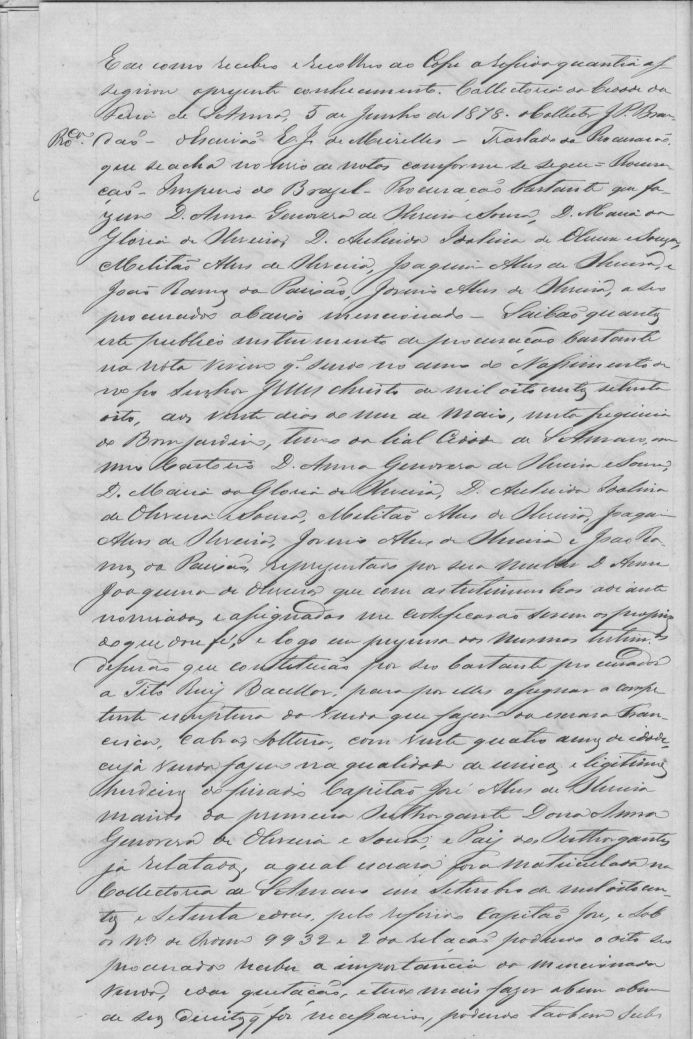 E de como recebeo e recolheo ao Cofe a referida quantia as-
signou o presente conhecimento. Collectoria da Cidade da
Feira de S. Anna, 5 de Junho de 1878. o Collector J. P. Bran-
Rco. dão - o Escrivão E. J. de Meirelles - Traslado da Procuração,
que se acha no livro de notas comforme se segue = Procura-
ção - Imperio do Brazil - Procuração bastante que fa-
zem D. Anna Genovera de Oliveira e Sousa, D. Maria da
Gloria de Oliveira, D. Idalina de Oliveira e Souza,
Melitão Alves de Oliveira, Joaquim Alves de Oliveira, e
João Ramos da Paixão, Jovino Alves de Oliveira, a seo
procurador abaixo mencionado - Saibão quantos
este publico instrumento de procuração bastante
na nota virem q. sendo no anno do Nassimento de
nosso Senhor Jesus Christo de mil oito centos setenta
oito, aos vinte dias do mez de Maio, nesta freguesia
do Bom Jardim, termo da Cidade de S. Amaro, em
meo Cartorio D. Anna Genovera de Oliveira e Sousa,
D. Maria da Gloria de Oliveira, D. Idalina
de Oliveira e Sousa, Melitão Alves de Oliveira, Joaquim
Alves de Oliveira, Jovino Alves de Oliveira e João Ra-
mos da Paixão, representado por sua mulher D. Anna
Joaquina de Oliveira, que com as testimunhas adiante
nomiadas e assignadas me certificarão serem os proprios
do que dou fé, e logo em prezensa das mesmas testim.as
deserão que constituião por seo bastante procurador
a Tito Ruiz Bacellar, para por elles assignar a compe-
tente escriptura da venda que fazem da escrava Fran-
cisca, Cabra, Solteira, com vinte quatro annos de idade,
cuja venda fazem na qualidade de unicos e legitimos
herdeiros do finado Capitão José Alves de Oliveira
marido da primeira Outhorgante Dona Anna
Genovera de Oliveira e Sousa e Pay dos Outhorgantes
já relatados, a qual escrava fora matriculada na
Collectoria de S. Amaro em Setembro de mil oito cen-
tos e Setenta e dous, pelo referido Capitão José, e sob
os Nos. de ordem 9932 e 2 da relação podendo o dito seo
procurador receber a importancia da mencionada
venda, e dar quitação, e tudo mais fazer a bem
de seos direitos q for necessario, podendo tambem subs